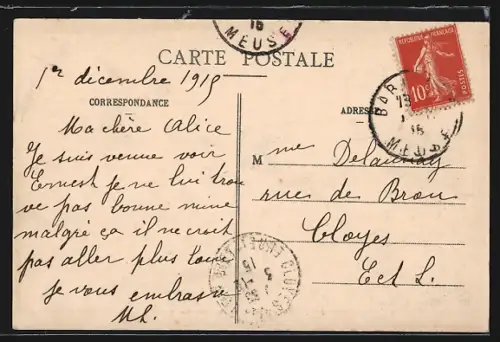 15
MEUSE
CARTE POSTALE
1er décembre 1915
CORRESPONDANCE
ADRESSE
REPUBLIQUE FRANÇAISE
10c
POSTES
BAR
15
MEUSE
Ma chère Alice
Je suis venue voir
Ernest je ne lui trou
ve pas bonne mine
malgré ça il ne croit
pas aller plus loin
je vous embrasse
ML.
Mme Delaunay
rue de Brou
Cloyes
E et L.
CLOYES
EURE ET
3
15